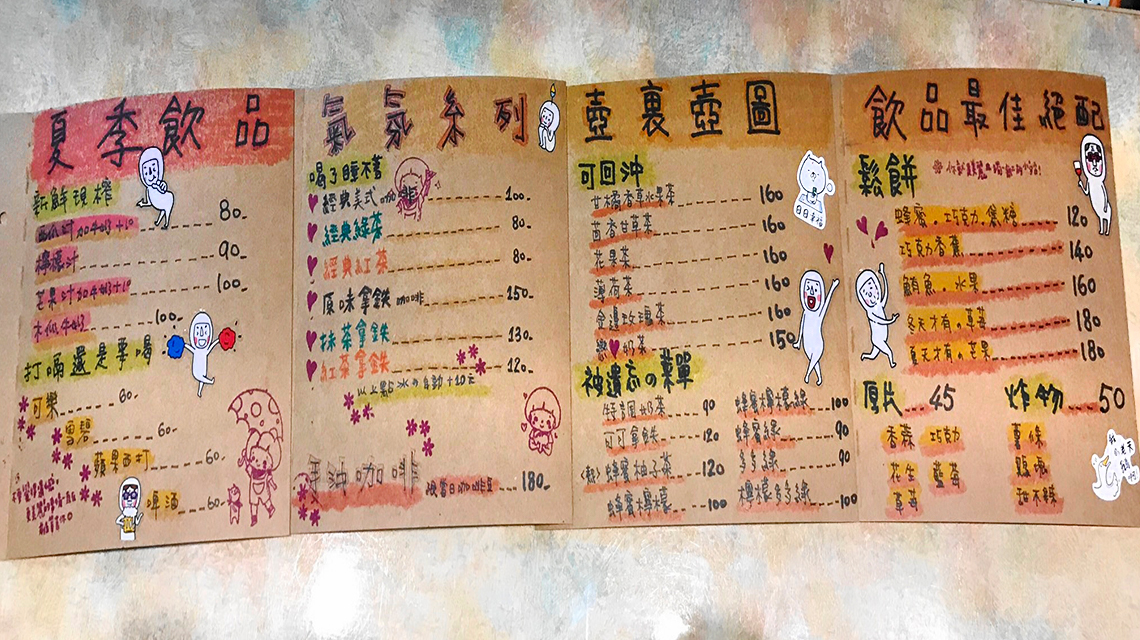 夏季飲品
新鮮現榨
西瓜汁 加牛奶+10 80.
檸檬汁 90.
芒果汁 加牛奶+10 100.
木瓜牛奶 100.
打嗝還是要喝
可樂 60.
雪碧 60.
蘋果西打 60.
啤酒 60.
氣氛系列
喝了睡不著
經典美式 咖啡 100.
經典綠茶 80.
經典紅茶 80.
原味拿鐵 咖啡 150.
抹茶拿鐵 130.
紅茶拿鐵 120.
手沖咖啡 180.
壺裏壺圖
可回沖
甘橘香草水果茶 160
茴香甘草茶 160
花果茶 160
薄荷茶 160
金邊玫瑰茶 160
奶茶 150
日日幸福
被遺忘の菜單
特調奶茶 90
可可拿鐵 120
(熱)蜂蜜柚子茶 120
蜂蜜檸檬 100
蜂蜜檸檬綠 100
蜂蜜綠 90
多多綠 90
檸檬多多綠 100
飲品最佳絕配
鬆餅
蜂蜜、巧克力、焦糖 120
巧克力香蕉 140
鮪魚、水果 160
冬天才有の草莓 180
夏天才有の芒果 180
厚片 45
香蒜 巧克力
花生 藍莓
草莓
炸物 50
薯條
雞塊
甜不辣